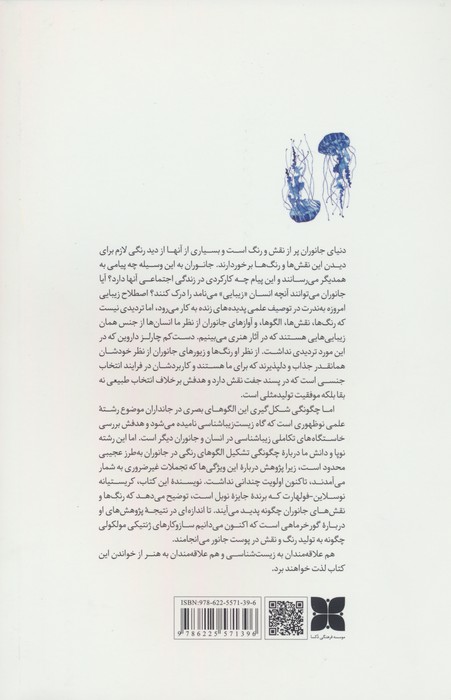 دنیای جانوران پر از نقش و رنگ است و بسیاری از آنها از دید رنگی لازم برای
دیدن این نقش‌ها و رنگ‌ها برخوردارند. جانوران به این وسیله چه پیامی به
همدیگر می‌رسانند و این پیام چه کارکردی در زندگی اجتماعی آنها دارد؟ آیا
جانوران می‌توانند آنچه انسان «زیبایی» می‌نامد را درک کنند؟ اصطلاح زیبایی
امروزه به‌ندرت در توصیف علمی پدیده‌های زنده به کار می‌رود، اما تردیدی نیست
که رنگ‌ها، نقش‌ها، الگوها، و آوازهای جانوران از نظر ما انسان‌ها از جنس همان
زیبایی‌هایی هستند که در آثار هنری می‌بینیم. دست‌کم چارلز داروین که در
این مورد تردیدی نداشت. از نظر او رنگ‌ها و زیورهای جانوران از نظر خودشان
همانقدر جذاب و دلپذیرند که برای ما هستند و کاربردشان در فرایند انتخاب
جنسی است که در پسند جفت نقش دارد و هدفش برخلاف انتخاب طبیعی نه
بقا بلکه موفقیت تولیدمثلی است.
اما چگونگی شکل‌گیری این الگوهای بصری در جانداران موضوع رشتهٔ
علمی نوظهوری است که گاه زیست‌زیباشناسی نامیده می‌شود و هدفش بررسی
خاستگاه‌های تکاملی زیباشناسی در انسان و جانوران دیگر است. اما این رشته
نوپا و دانش ما دربارهٔ چگونگی تشکیل الگوهای رنگی در جانوران به‌طرز عجیبی
محدود است، زیرا پژوهش دربارهٔ این ویژگی‌ها که تجملات غیرضروری به شمار
می‌آمدند، تاکنون اولویت چندانی نداشت. نویسندهٔ این کتاب، کریستیانه
نوسلاین-فولهارت که برندهٔ جایزهٔ نوبل است، توضیح می‌دهد که رنگ‌ها و
نقش‌های جانوران چگونه پدید می‌آیند. تا اندازه‌ای در نتیجهٔ پژوهش‌های او
دربارهٔ گورخرماهی است که اکنون می‌دانیم سازوکارهای ژنتیکی مولکولی
چگونه به تولید رنگ و نقش در پوست جانور می‌انجامند.
هم علاقه‌مندان به زیست‌شناسی و هم علاقه‌مندان به هنر از خواندن این
کتاب لذت خواهند برد.
ISBN: 978-622-5571-39-6
9 786225 571396